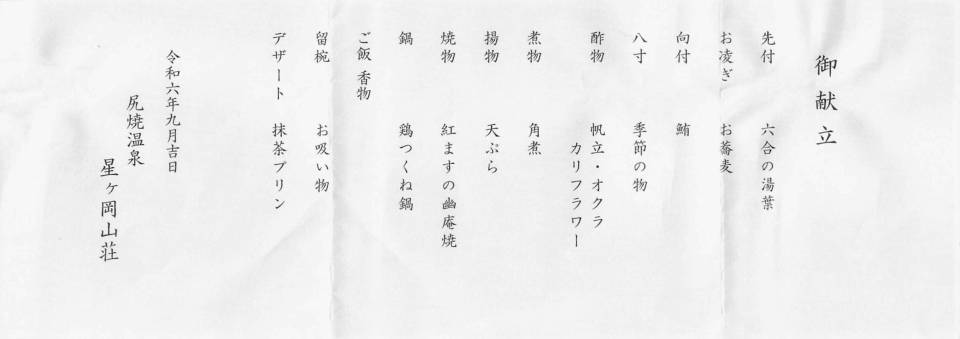 御献立
先付 六合の湯葉
お凌ぎ お蕎麦
向付 鮪
八寸 季節の物
酢物 帆立・オクラ
カリフラワー
煮物 角煮
揚物 天ぷら
焼物 紅ますの幽庵焼
鍋 鶏つくね鍋
ご飯 香物
留椀 お吸い物
デザート 抹茶プリン
令和六年九月吉日
尻焼温泉
星ヶ岡山荘